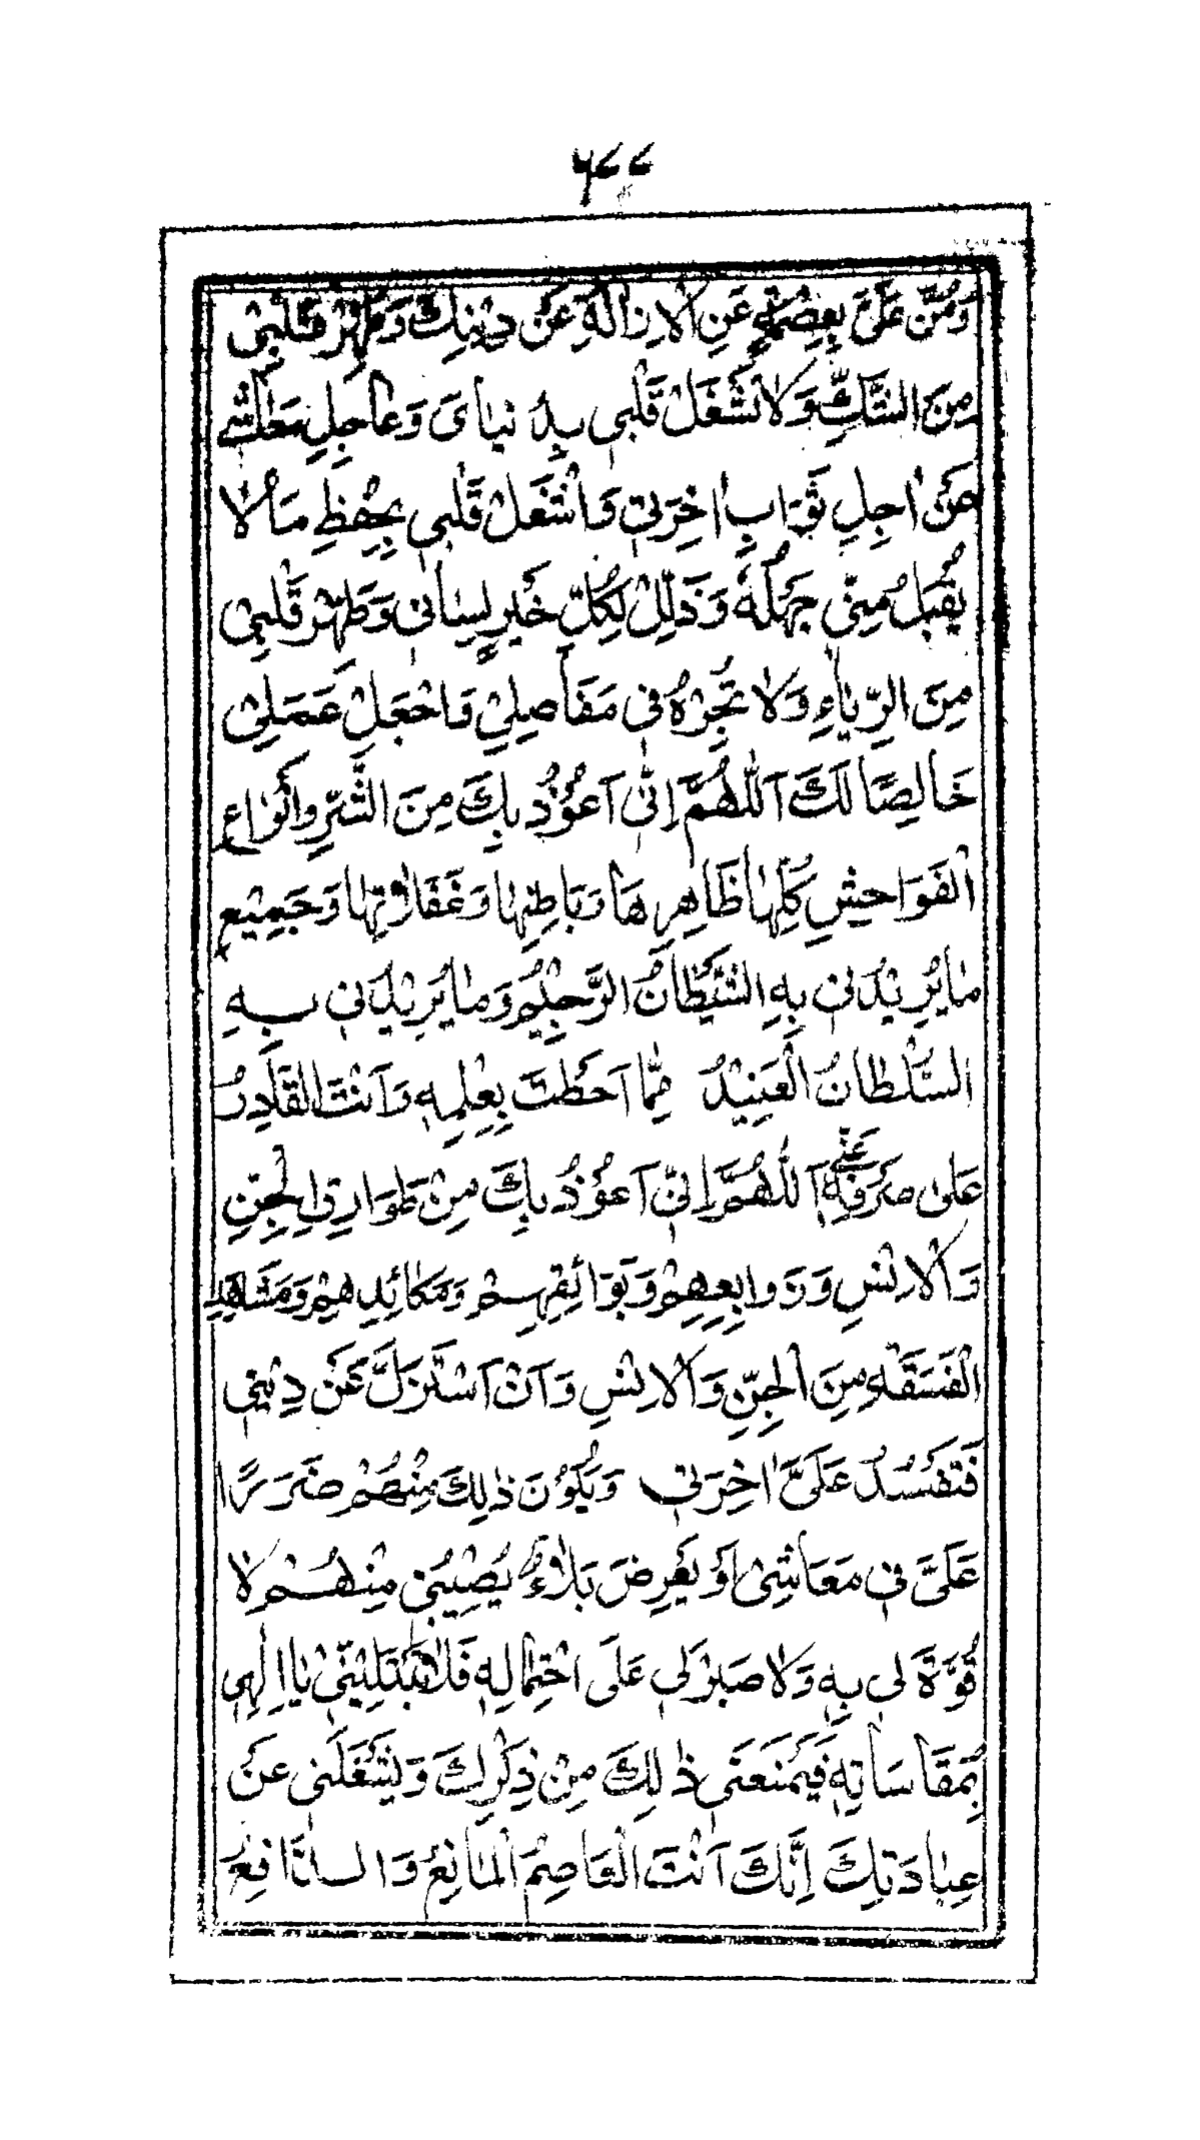 ۶۴۴
وَمُنَّ عَلَیَّ بِعِصْمَةٍ عَنِ الْاِزَالَةِ عَنْ دِيْنِكَ وَطَهِّرْ قَلْبِیْ
مِنَ الشَّكِّ وَلَا تَشْغَلْ قَلْبِی بِدُنْيَاىَ وَعَاجِلِ مَعَاشِے
عَنْ اٰجِلِ ثَوَابِ اٰخِرَتِیْ وَاشْغَلْ قَلْبِی بِحِفْظِ مَا لَا
يُقْبَلُ مِنِّیْ جَهْلُهٗ وَذَلِّلْ لِكُلِّ خَيْرٍ لِسَانِیْ وَطَهِّرْ قَلْبِیْ
مِنَ الرِّيَاءِ وَلَا تُجْرِهْ فِیْ مَفَاصِلِیْ وَاجْعَلْ عَمَلِیْ
خَالِصًا لَكَ اَللّٰهُمَّ اِنِّیْ اَعُوْذُ بِكَ مِنَ الشَّرِّ وَاَنْوَاعِ
الْفَوَاحِشِ كُلِّهَا ظَاهِرِهَا وَبَاطِنِهَا وَغَفَلَاتِهَا وَجَمِيْعِ
مَا يُرِيْدُنِیْ بِهِ الشَّيْطَانُ الرَّجِيْمُ وَمَا يُرِيْدُنِیْ بِهِ
السُّلْطَانُ الْعَنِيْدُ مِمَّا اَحَطْتَ بِعِلْمِهٖ وَاَنْتَ الْقَادِرُ
عَلٰی صَرْفِهٖ عَنِّیْ اَللّٰهُمَّ اِنِّیْ اَعُوْذُ بِكَ مِنْ طَوَارِقِ الْجِنِّ
وَالْاِنْسِ وَزَوَابِعِهِمْ وَبَوَائِقِهِمْ وَمَكَائِدِهِمْ وَمَشَاهِدِ
الْفَسَقَةِ مِنَ الْجِنِّ وَالْاِنْسِ وَاَنْ اُسْتَزَلَّ عَنْ دِيْنِیْ
فَتَفْسُدُ عَلَیَّ اٰخِرَتِیْ وَيَكُوْنَ ذٰلِكَ مِنْهُمْ ضَرَرًا
عَلَیَّ فِیْ مَعَاشِیْ اَوْ يَعْرِضَ بَلَاءٌ يُصِيْبُنِیْ مِنْهُمْ لَا
قُوَّةَ لِی بِهٖ وَلَا صَبْرَ لِی عَلَی احْتِمَالِهٖ فَلَا تَبْتَلِيَنِّیْ يَا اِلٰهِی
بِمُقَاسَاتِهٖ فَيَمْنَعَنِی ذٰلِكَ مِنْ ذِكْرِكَ وَيَشْغَلَنِی عَنْ
عِبَادَتِكَ اِنَّكَ اَنْتَ الْعَاصِمُ الْمَانِعُ وَالدَّافِعُ